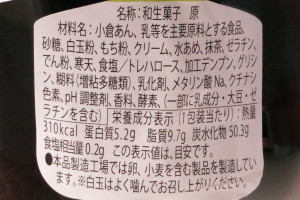 名称:和生菓子 原
材料名:小倉あん、乳等を主要原料とする食品、
砂糖、白玉粉、もち粉、クリーム、水あめ、抹茶、ゼラチン、
でん粉、寒天、食塩/トレハロース、加工デンプン、グリ
シン、糊料(増粘多糖類)、乳化剤、メタリン酸Na、クチナシ
色素、pH調整剤、香料、酵素、(一部に乳成分・大豆・ゼ
ラチンを含む) 栄養成分表示(1包装当たり):熱量
310kcal 蛋白質5.2g 脂質9.7g 炭水化物50.3g
食塩相当量0.2g この表示値は、目安です。
●本品製造工場では卵、小麦を含む製品を製造してい
ます。※白玉はよく噛んでお召し上がりください。